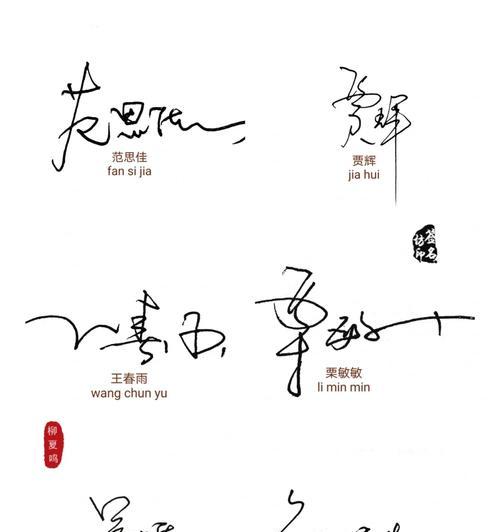 范思佳
范思佳
fan si jia
贾辉
贾辉
jia hui
签名
坊印
王春雨
王春雨
wang chun yu
栗敏敏
栗敏敏
li min min
柳夏鸣